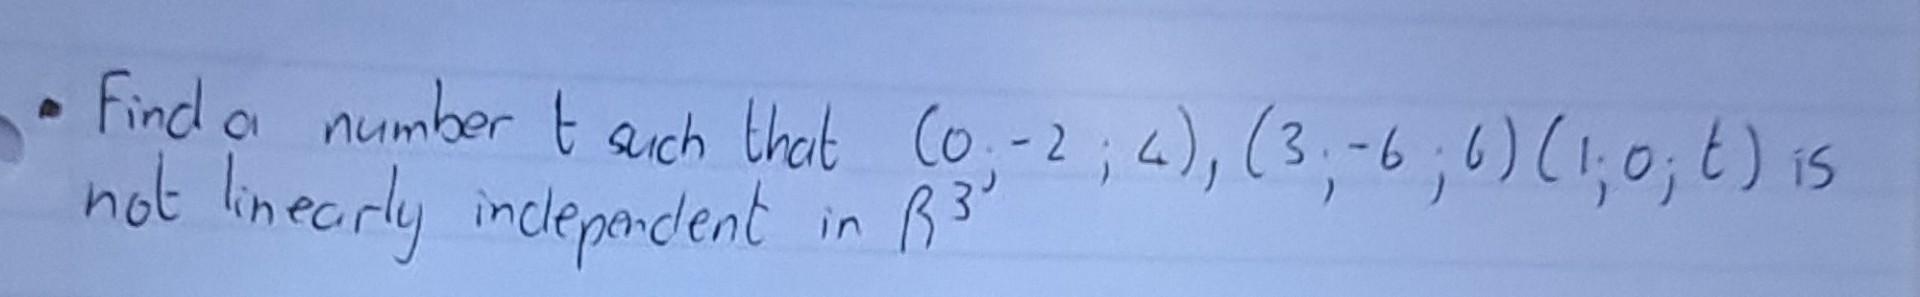 • Find a number t such that (0;-2;4), (3;-6;6)(1;0;t) is
not linearly independent in R3